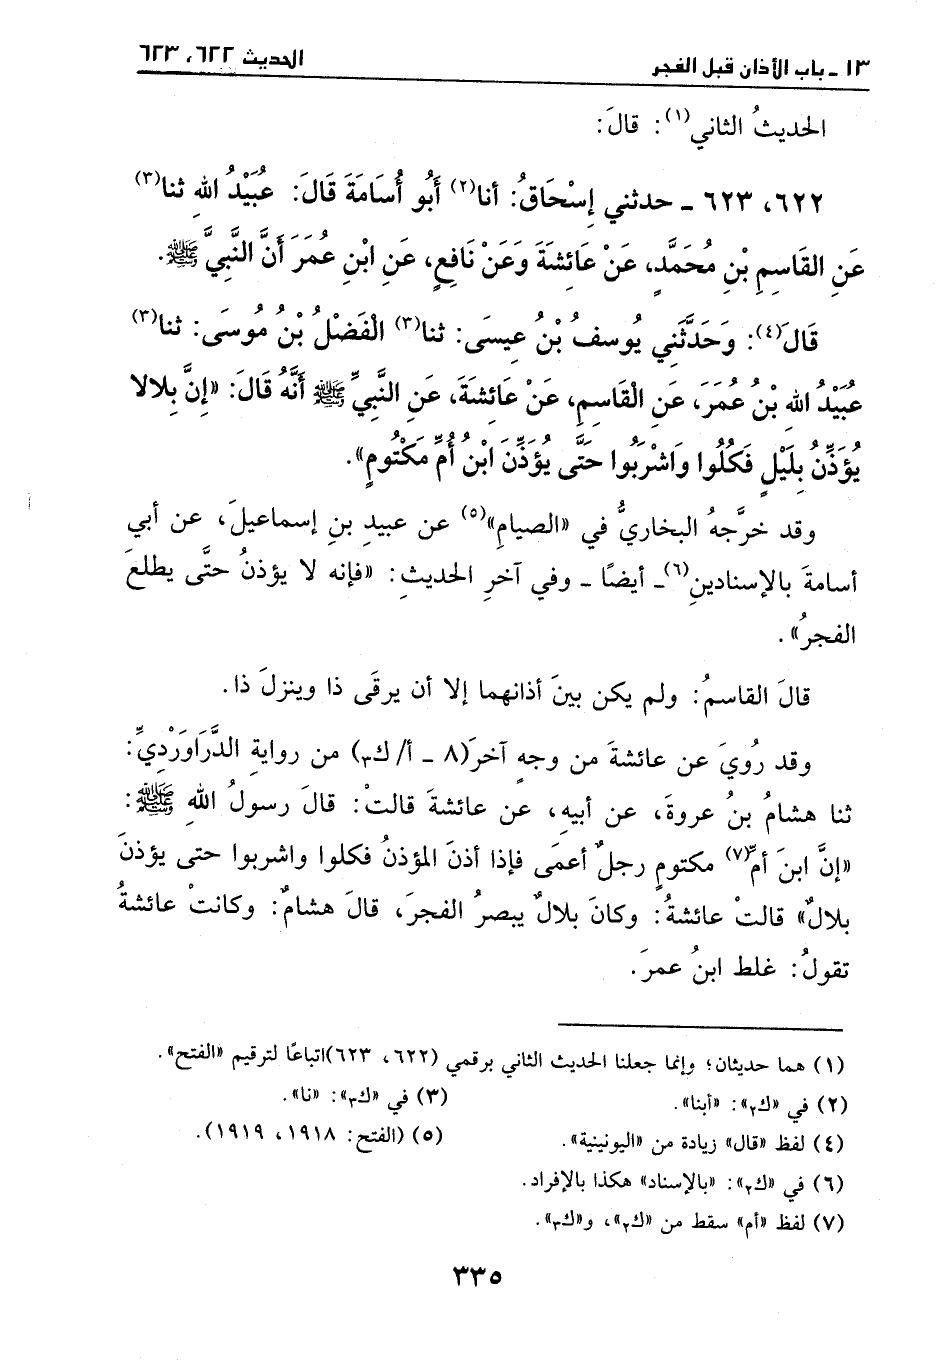 ١٣ ـ باب الأذان قبل الفجر الحديث ٦٢٢، ٦٢٣
الحديثُ الثاني(١): قالَ:
٦٢٢، ٦٢٣ ـ حدثني إِسْحَاقُ: أنا(٢) أَبُو أُسَامَةَ قَالَ: عُبَيْدُ اللهِ ثنا(٣)
عَنِ القَاسِمِ بْنِ مُحَمَّدٍ، عَنْ عَائِشَةَ وَعَنْ نَافِعٍ، عَنِ ابْنِ عُمَرَ أَنَّ النَّبِيَّ ﷺ.
قَالَ(٤): وَحَدَّثَنِي يُوسفُ بْنُ عِيسَى: ثنا(٣) الْفَضْلُ بْنُ مُوسَى: ثنا(٣)
عُبَيْدُ اللهِ بْنُ عُمَرَ، عَنِ الْقَاسِمِ، عَنْ عَائِشَةَ، عَنِ النَّبِيِّ ﷺ أَنَّهُ قَالَ: «إِنَّ بِلالا
يُؤَذِّنُ بِلَيْلٍ فَكُلُوا وَاشْرَبُوا حَتَّى يُؤَذِّنَ ابْنُ أُمِّ مَكْتُومٍ».
وقد خرَّجهُ البخاريُّ في «الصيامِ»(٥) عن عبيدِ بنِ إسماعيلَ، عن أبي
أسامةَ بالإسنادينِ(٦)ـ أيضًا ـ وفي آخرِ الحديثِ: «فإنه لا يؤذنُ حتَّى يطلعَ
الفجرُ».
قالَ القاسمُ: ولم يكن بينَ أذانهما إلا أن يرقَى ذا وينزلَ ذا.
وقد رُويَ عن عائشةَ من وجهٍ آخرَ(٨ ـ أ/ ك٣) من روايةِ الدَّرَاوَرْديِّ:
ثنا هشامُ بنُ عروةَ، عن أبيهِ، عن عائشةَ قالتْ: قالَ رسولُ اللهِ ﷺ:
«إنَّ ابنَ أمِّ(٧) مكتومٍ رجلٌ أعمَى فإذا أذنَ المؤذنُ فكلوا واشربوا حتى يؤذنَ
بلالٌ» قالتْ عائشةُ: وكانَ بلالٌ يبصرُ الفجرَ، قالَ هشامٌ: وكانتْ عائشةُ
تقولُ: غلط ابنُ عمرَ.
(١) هما حديثان؛ وإنما جعلنا الحديث الثاني برقمي (٦٢٢، ٦٢٣)اتباعًا لترقيم «الفتح».
(٢) في «ك٢»: «أبنا». (٣) في «ك٣»: «نا».
(٤) لفظ «قال» زيادة من «اليونينية». (٥) (الفتح: ١٩١٨، ١٩١٩).
(٦) في «ك٢»: «بالإسناد» هكذا بالإفراد.
(٧) لفظ «أم» سقط من «ك٢»، و«ك٣».
٣٣٥